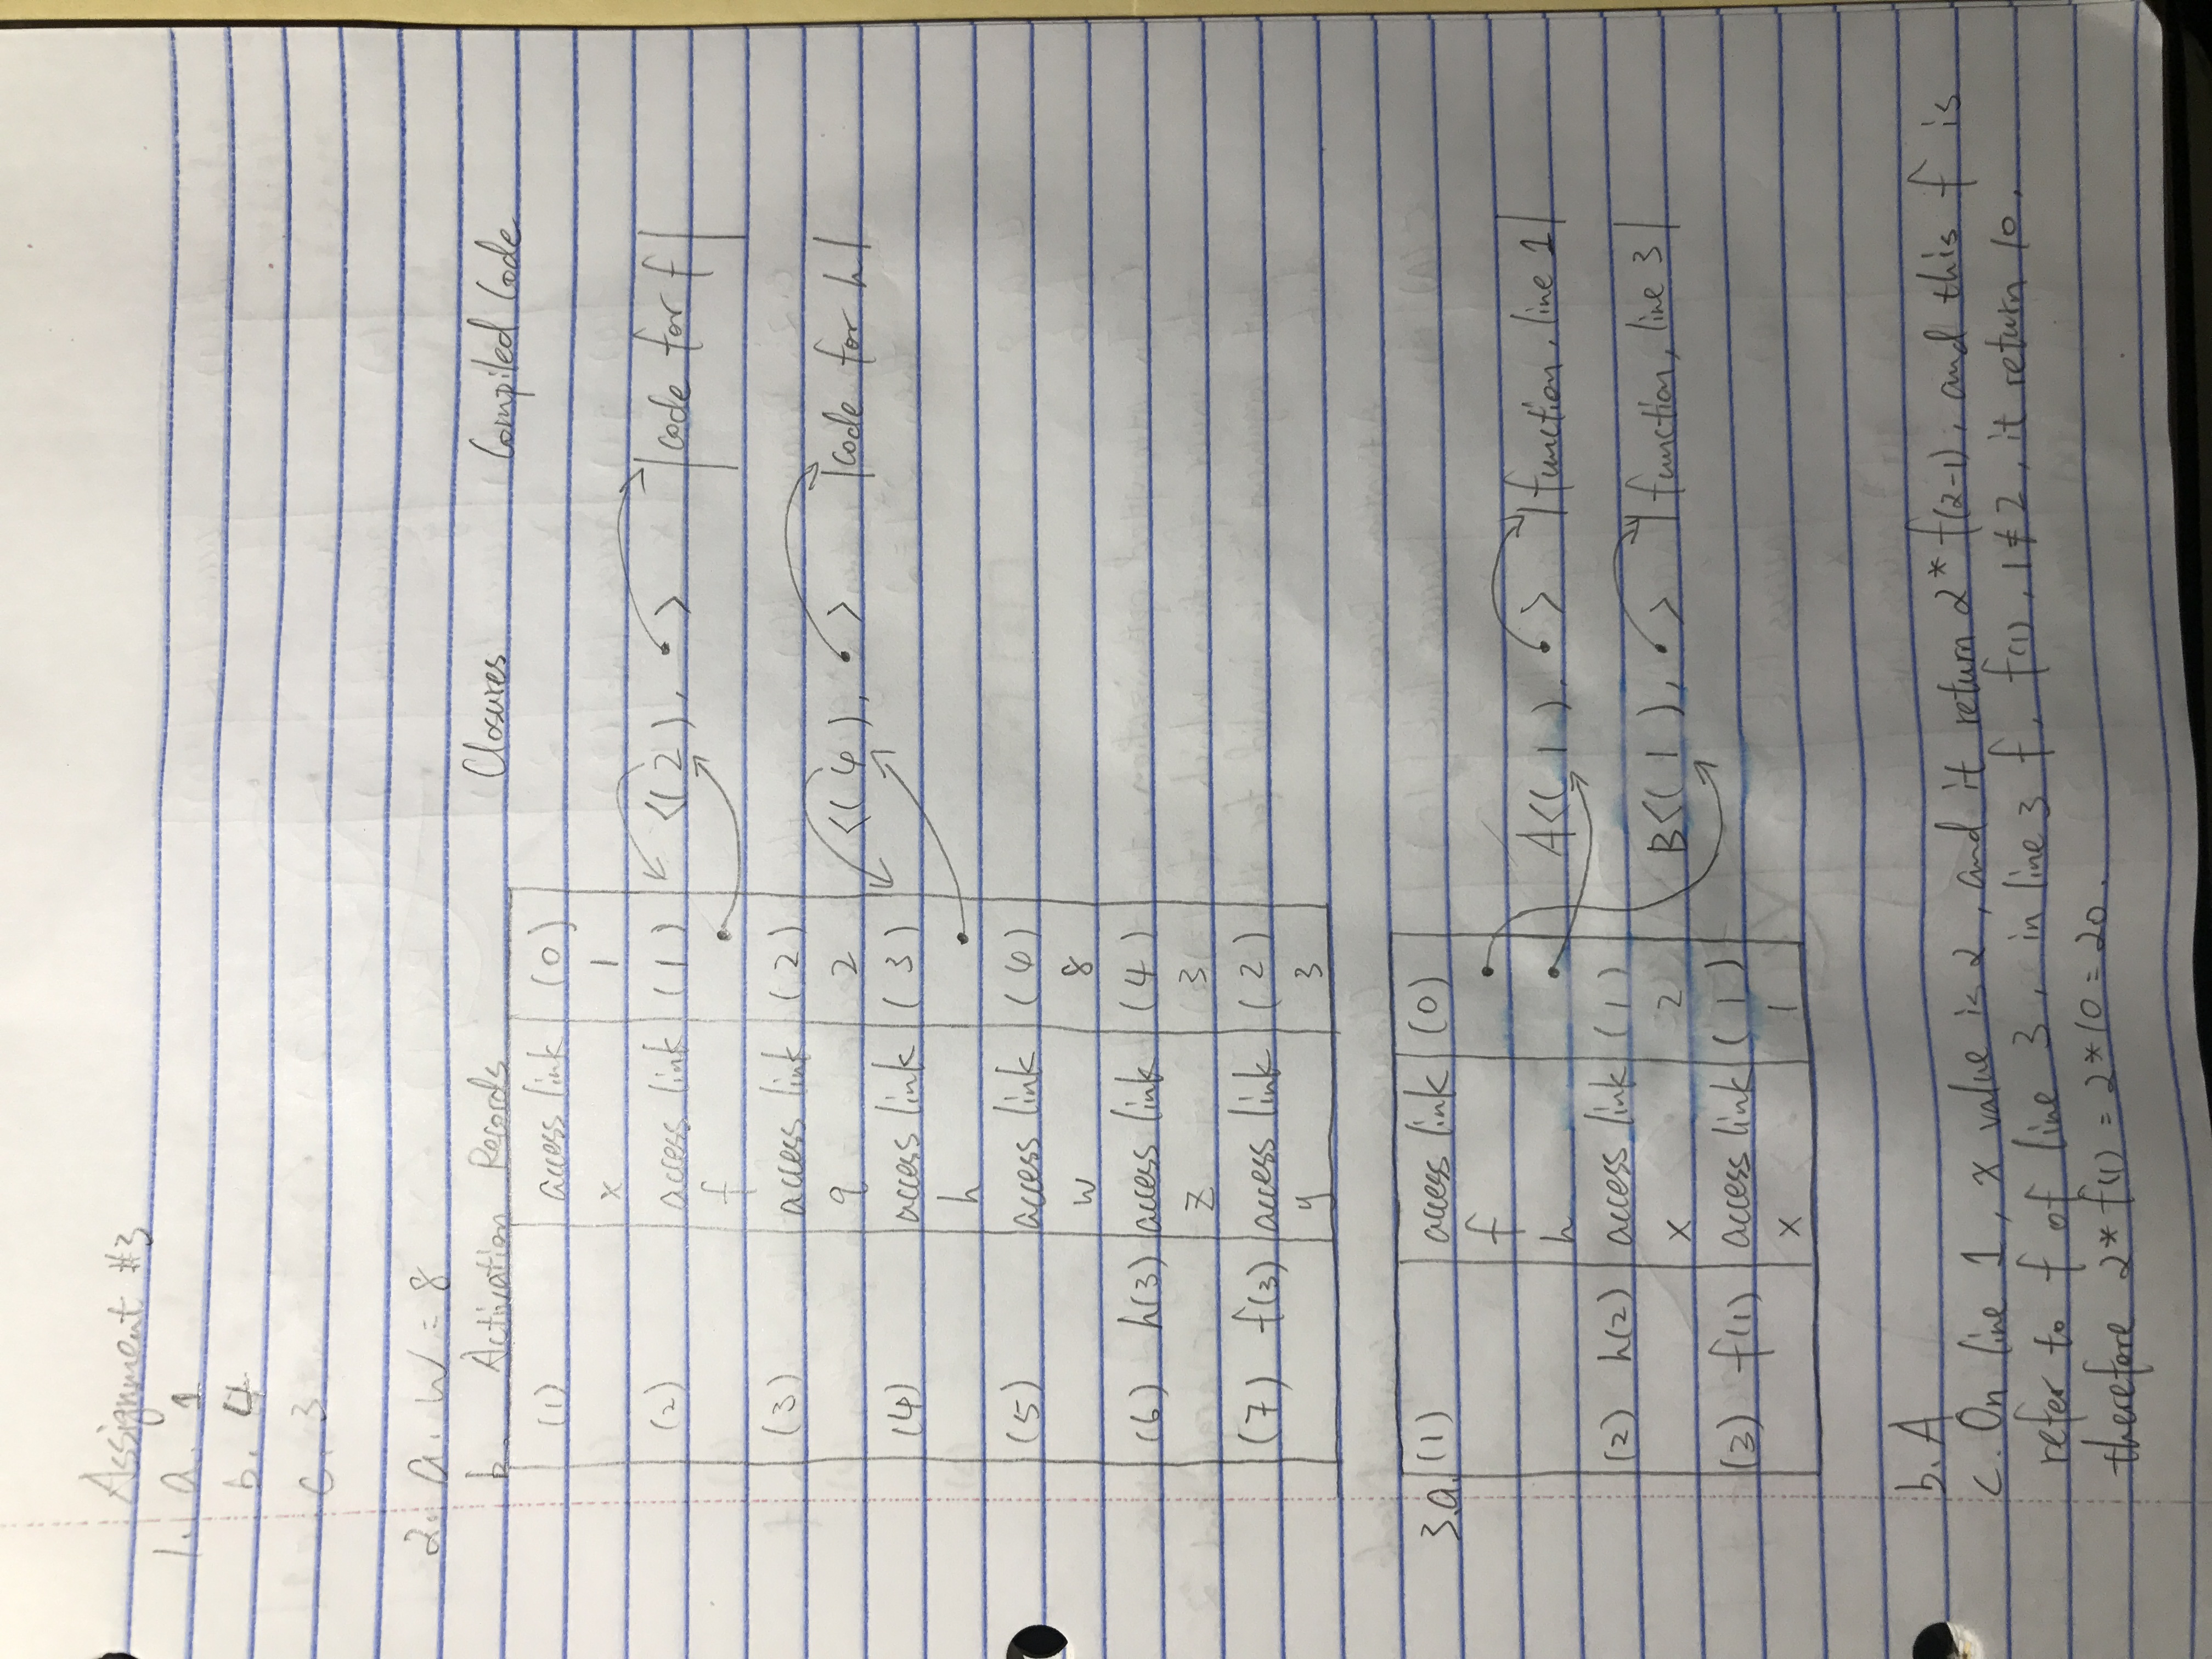 Assignment #3
1. a. 1
b. 4
c. 3
2. a. W = 8
b. Activation Records Closures Compiled Code
(1) access link (0)
x 1
(2) access link (1) <(2), • > |code for f|
f •
(3) access link (2)
q 2 <(4), • > |code for h|
(4) access link (3)
h •
(5) access link (4)
w 8
(6) h(3) access link (4)
z 3
(7) f(3) access link (2)
y 3
3.a. (1) access link (0)
f •
h • A<(1), • > |function, line 1|
(2) h(2) access link (1)
x 2 B<(1), • > |function, line 3|
(3) f(1) access link (1)
x 1
b. A
c. On line 1, x value is 2, and it return 2*f(2-1), and this f is
refer to f of line 3, in line 3 f, f(1), 1≠2, it return 10,
therefore 2*f(1) = 2*10 = 20.